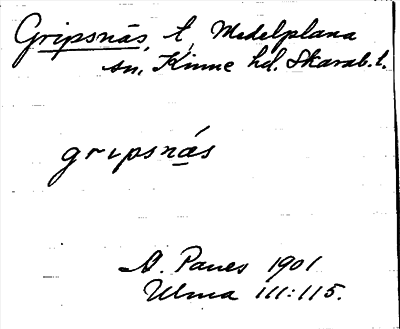 Gripsnäs, t, Medelplana
sn, Kinne hd. Skarab. l.
gripsnás
D. Panes 1901
Ulma 111:115.